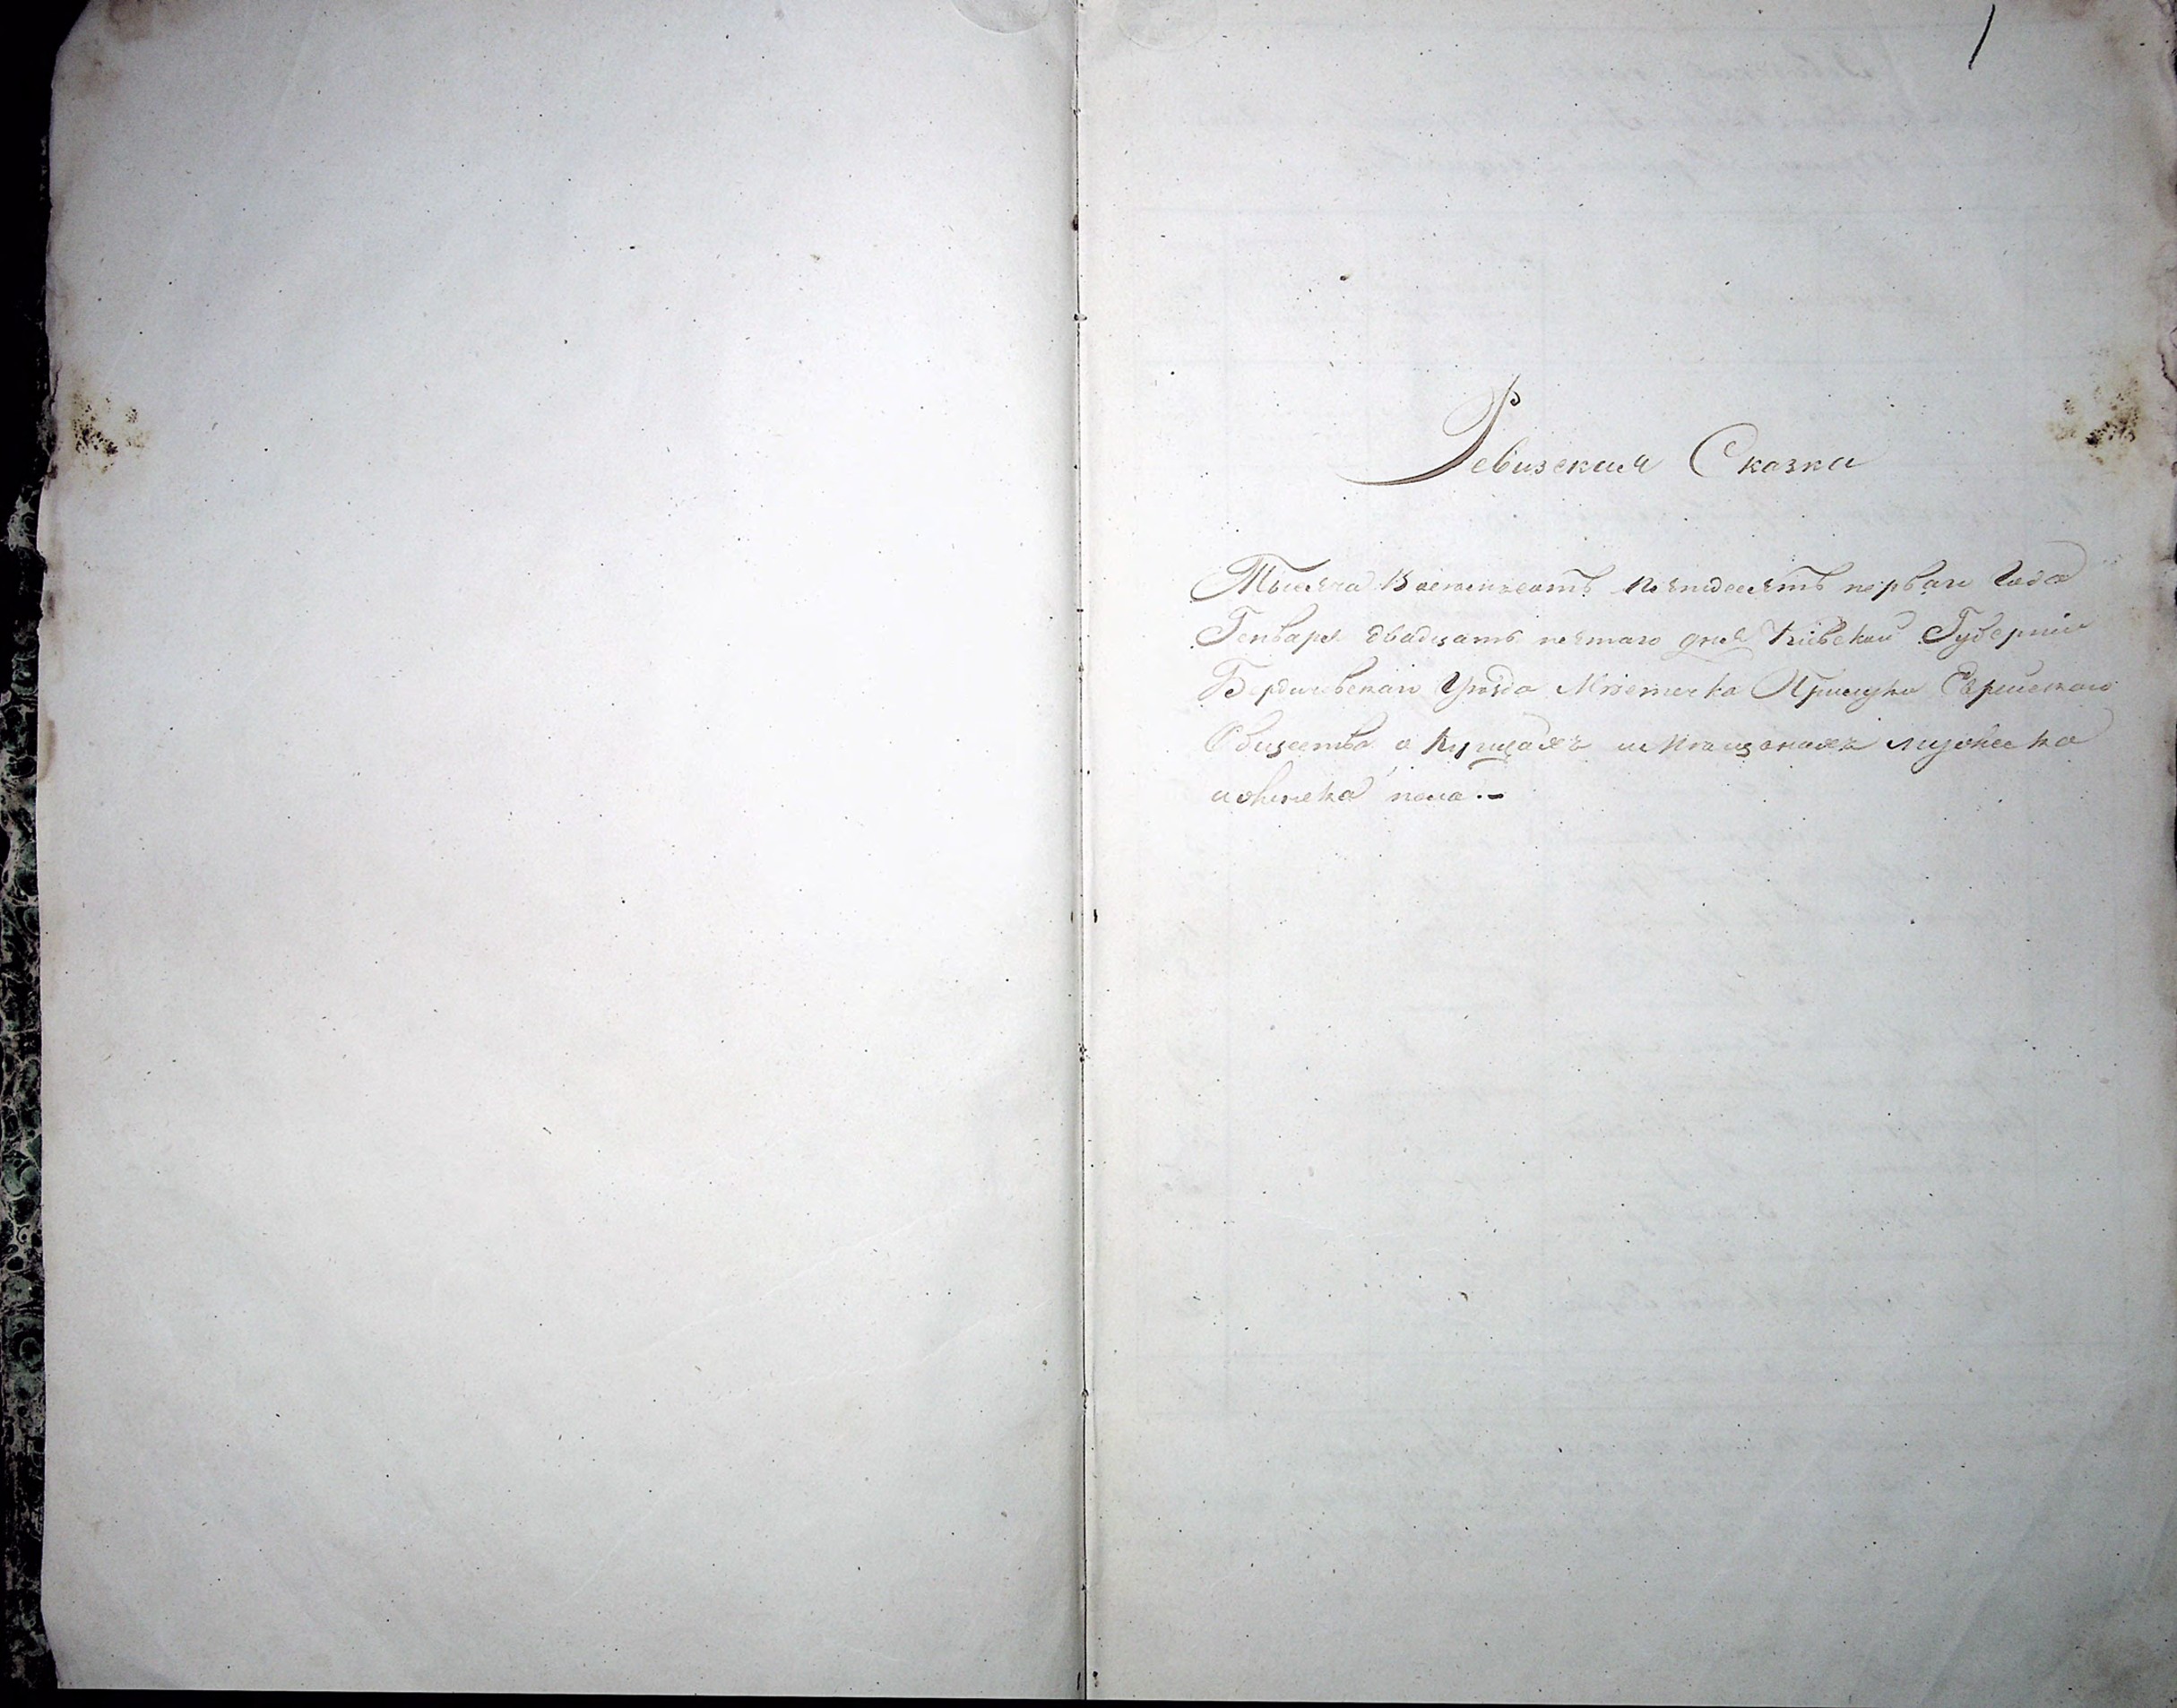 1
Ревизская Сказка
Тысяча Восемьсотъ пятдесятъ перваго Года
Генваря двадцать пятого дня Кіевской Губерніи
Бердичевскаго Уѣзда Мѣстечка Прилуки Еврейскаго
Общества о Купцахъ и Мѣщанахъ мужеска
и женска пола.-